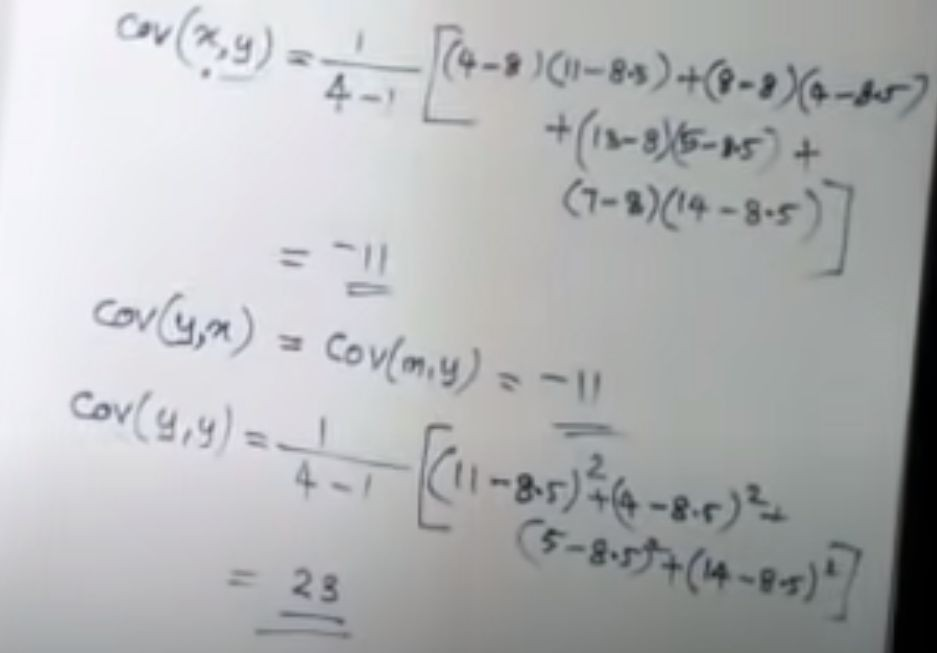 cov(x,y) = 1/(4-1) [(4-8)(11-8.5)+(8-8)(4-8.5)
+(13-8)(5-8.5)+
(7-8)(14-8.5)]
= -11
cov(y,x) = cov(x,y) = -11
cov(y,y) = 1/(4-1) [(11-8.5)²+(4-8.5)²+
(5-8.5)²+(14-8.5)²]
= 23